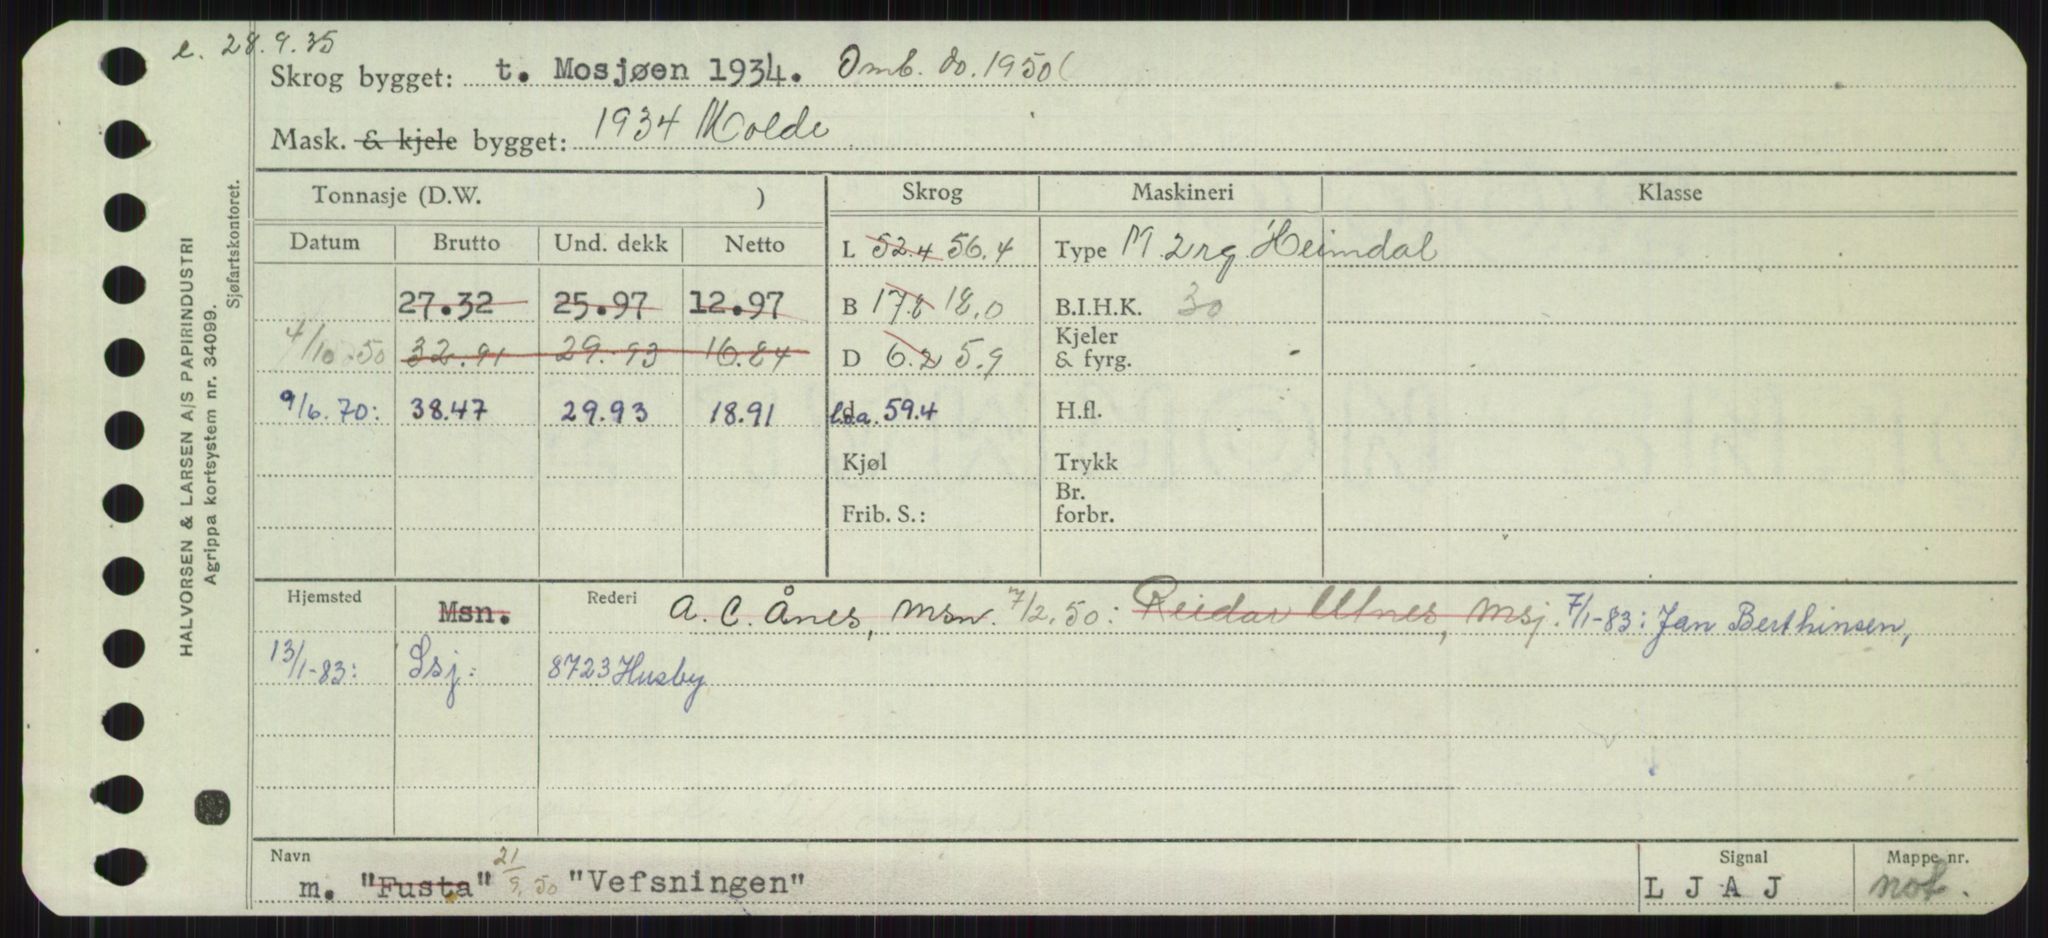 e. 28.9.35
Skrog bygget: t. Mosjøen 1934. Omb. do. 1950
Mask. & kjele bygget: 1934 Molde
Tonnasje (D.W. ) Skrog Maskineri Klasse
Datum Brutto Und. dekk Netto L 52.4 56.4 Type M. 2 rg. Heimdal
27.32 25.97 12.97 B 17.8 18.0 B.I.H.K. 30
4/10 50 32.91 29.93 16.84 D 6.2 5.9 Kjeler & fyrg.
9/6.70: 38.47 29.93 18.91 l.o.a. 59.4 H.fl.
Kjøl Trykk
Frib. S.: Br. forbr.
Hjemsted Msn. Rederi A. C. Ånes, Msn. 7/2.50: Reidar Utnes, Msj. 7/1-83: Jan Berthinsen,
13/1-83: Ssj: 8723 Husby
Navn Signal Mappe nr.
m. "Fusta" 21/9.50 "Vefsningen" L J A J not.
HALVORSEN & LARSEN A/S PAPIRINDUSTRI
Agrippa kortsystem nr. 34099.
Sjøfartskontoret.